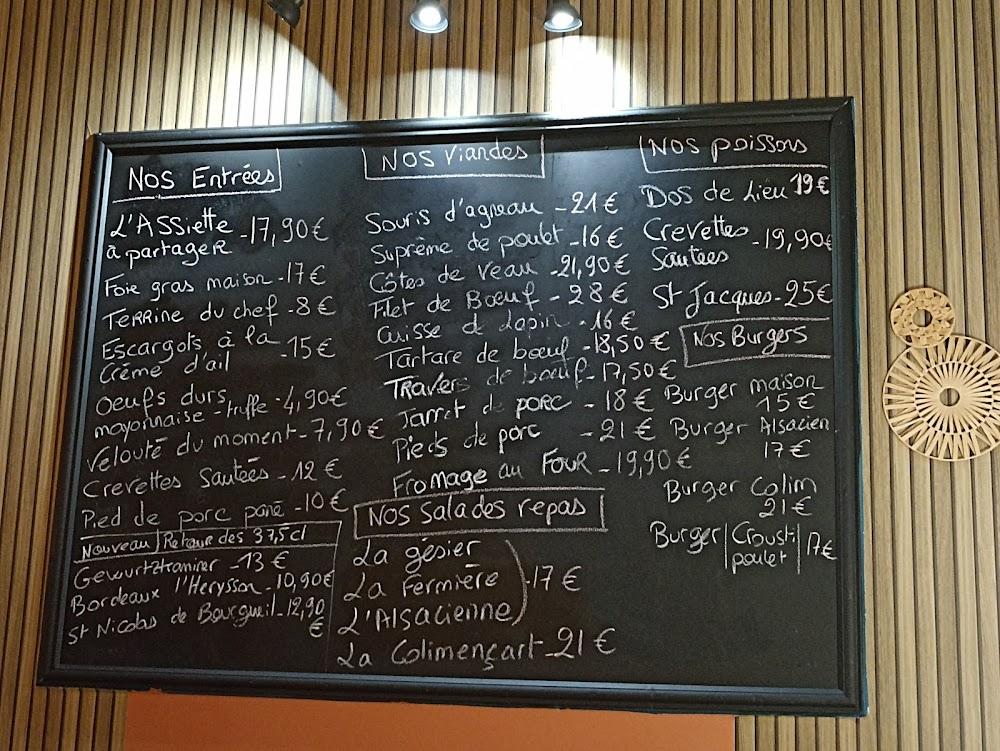 Nos Entrées
L'Assiette
à partager - 17,90 €
Foie gras maison - 17 €
Terrine du chef - 8 €
Escargots à la
Crème d'ail - 15 €
Oeufs durs
mayonnaise - truffe - 4,90 €
Velouté du moment - 7,90 €
Crevettes Sautées - 12 €
Pied de porc pané - 10 €
Nouveau | Retour des 37,5 cl
Gewurtztraminer - 13 €
Bordeaux l'Herysson - 10,90 €
St Nicolas de Bourgueil - 12,90
€
Nos Viandes
Souris d'agneau - 21 €
Suprême de poulet - 16 €
Côtes de Veau - 21,90 €
Filet de Boeuf - 28 €
Cuisse de Lapin - 16 €
Tartare de boeuf - 18,50 €
Travers de boeuf - 17,50 €
Jarret de porc - 18 €
Pieds de porc - 21 €
Fromage au Four - 19,90 €
Nos salades repas
La gésier
La Fermière - 17 €
L'Alsacienne
La Colimençart - 21 €
Nos poissons
Dos de Lieu 19 €
Crevettes
Sautées - 19,90 €
St Jacques - 25 €
Nos Burgers
Burger maison
15 €
Burger Alsacien
17 €
Burger Colim
21 €
Burger | Crousti | 17 €
poulet